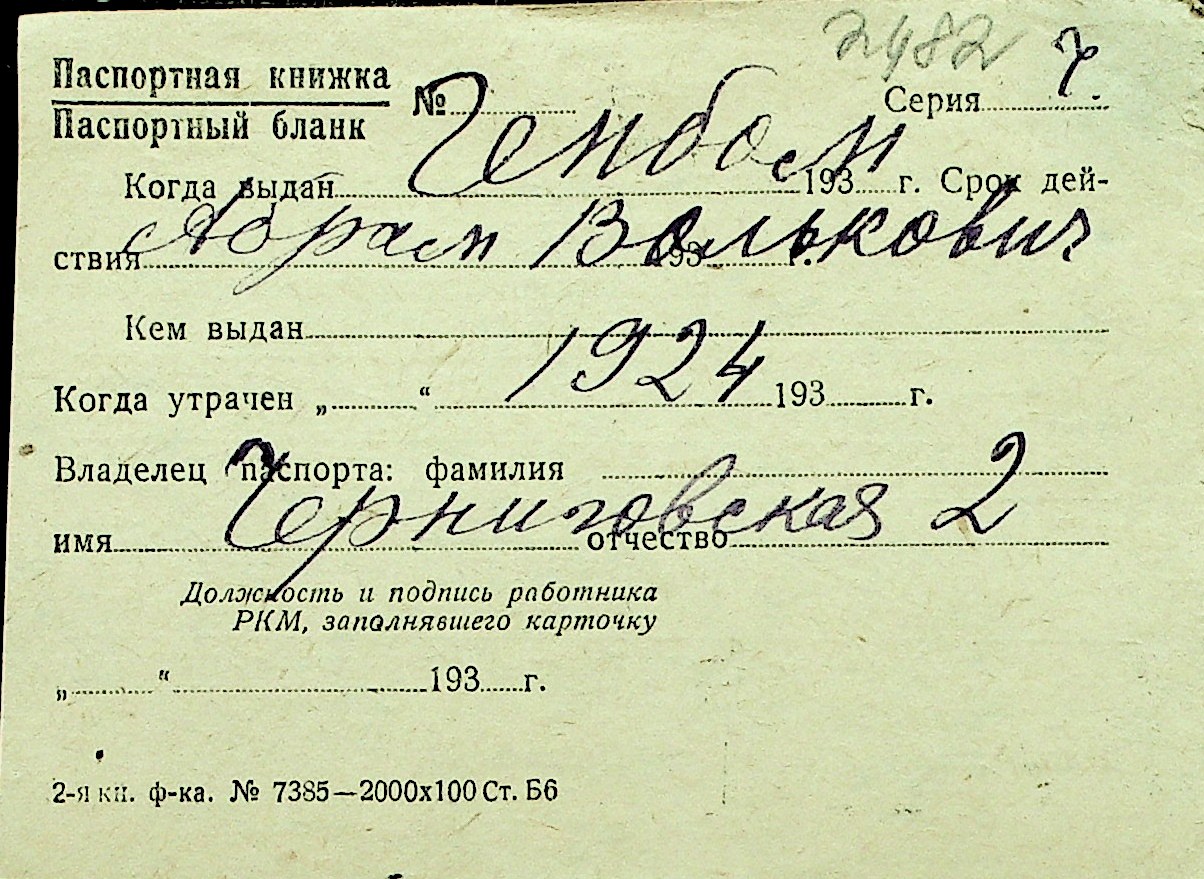 2482
Паспортная книжка
Паспортный бланк
№ Серия
Когда выдан 193 г. Срок дей-
Абрам Волькович
ствия 193 г.
Кем выдан
1924
Когда утрачен „ “ 193 г.
Владелец паспорта: фамилия
Черниговская 2
имя отчество
Должность и подпись работника
РКМ, заполнявшего карточку
„ “ 193 г.
2-я кн. ф-ка. № 7385—2000х100 Ст. Б6